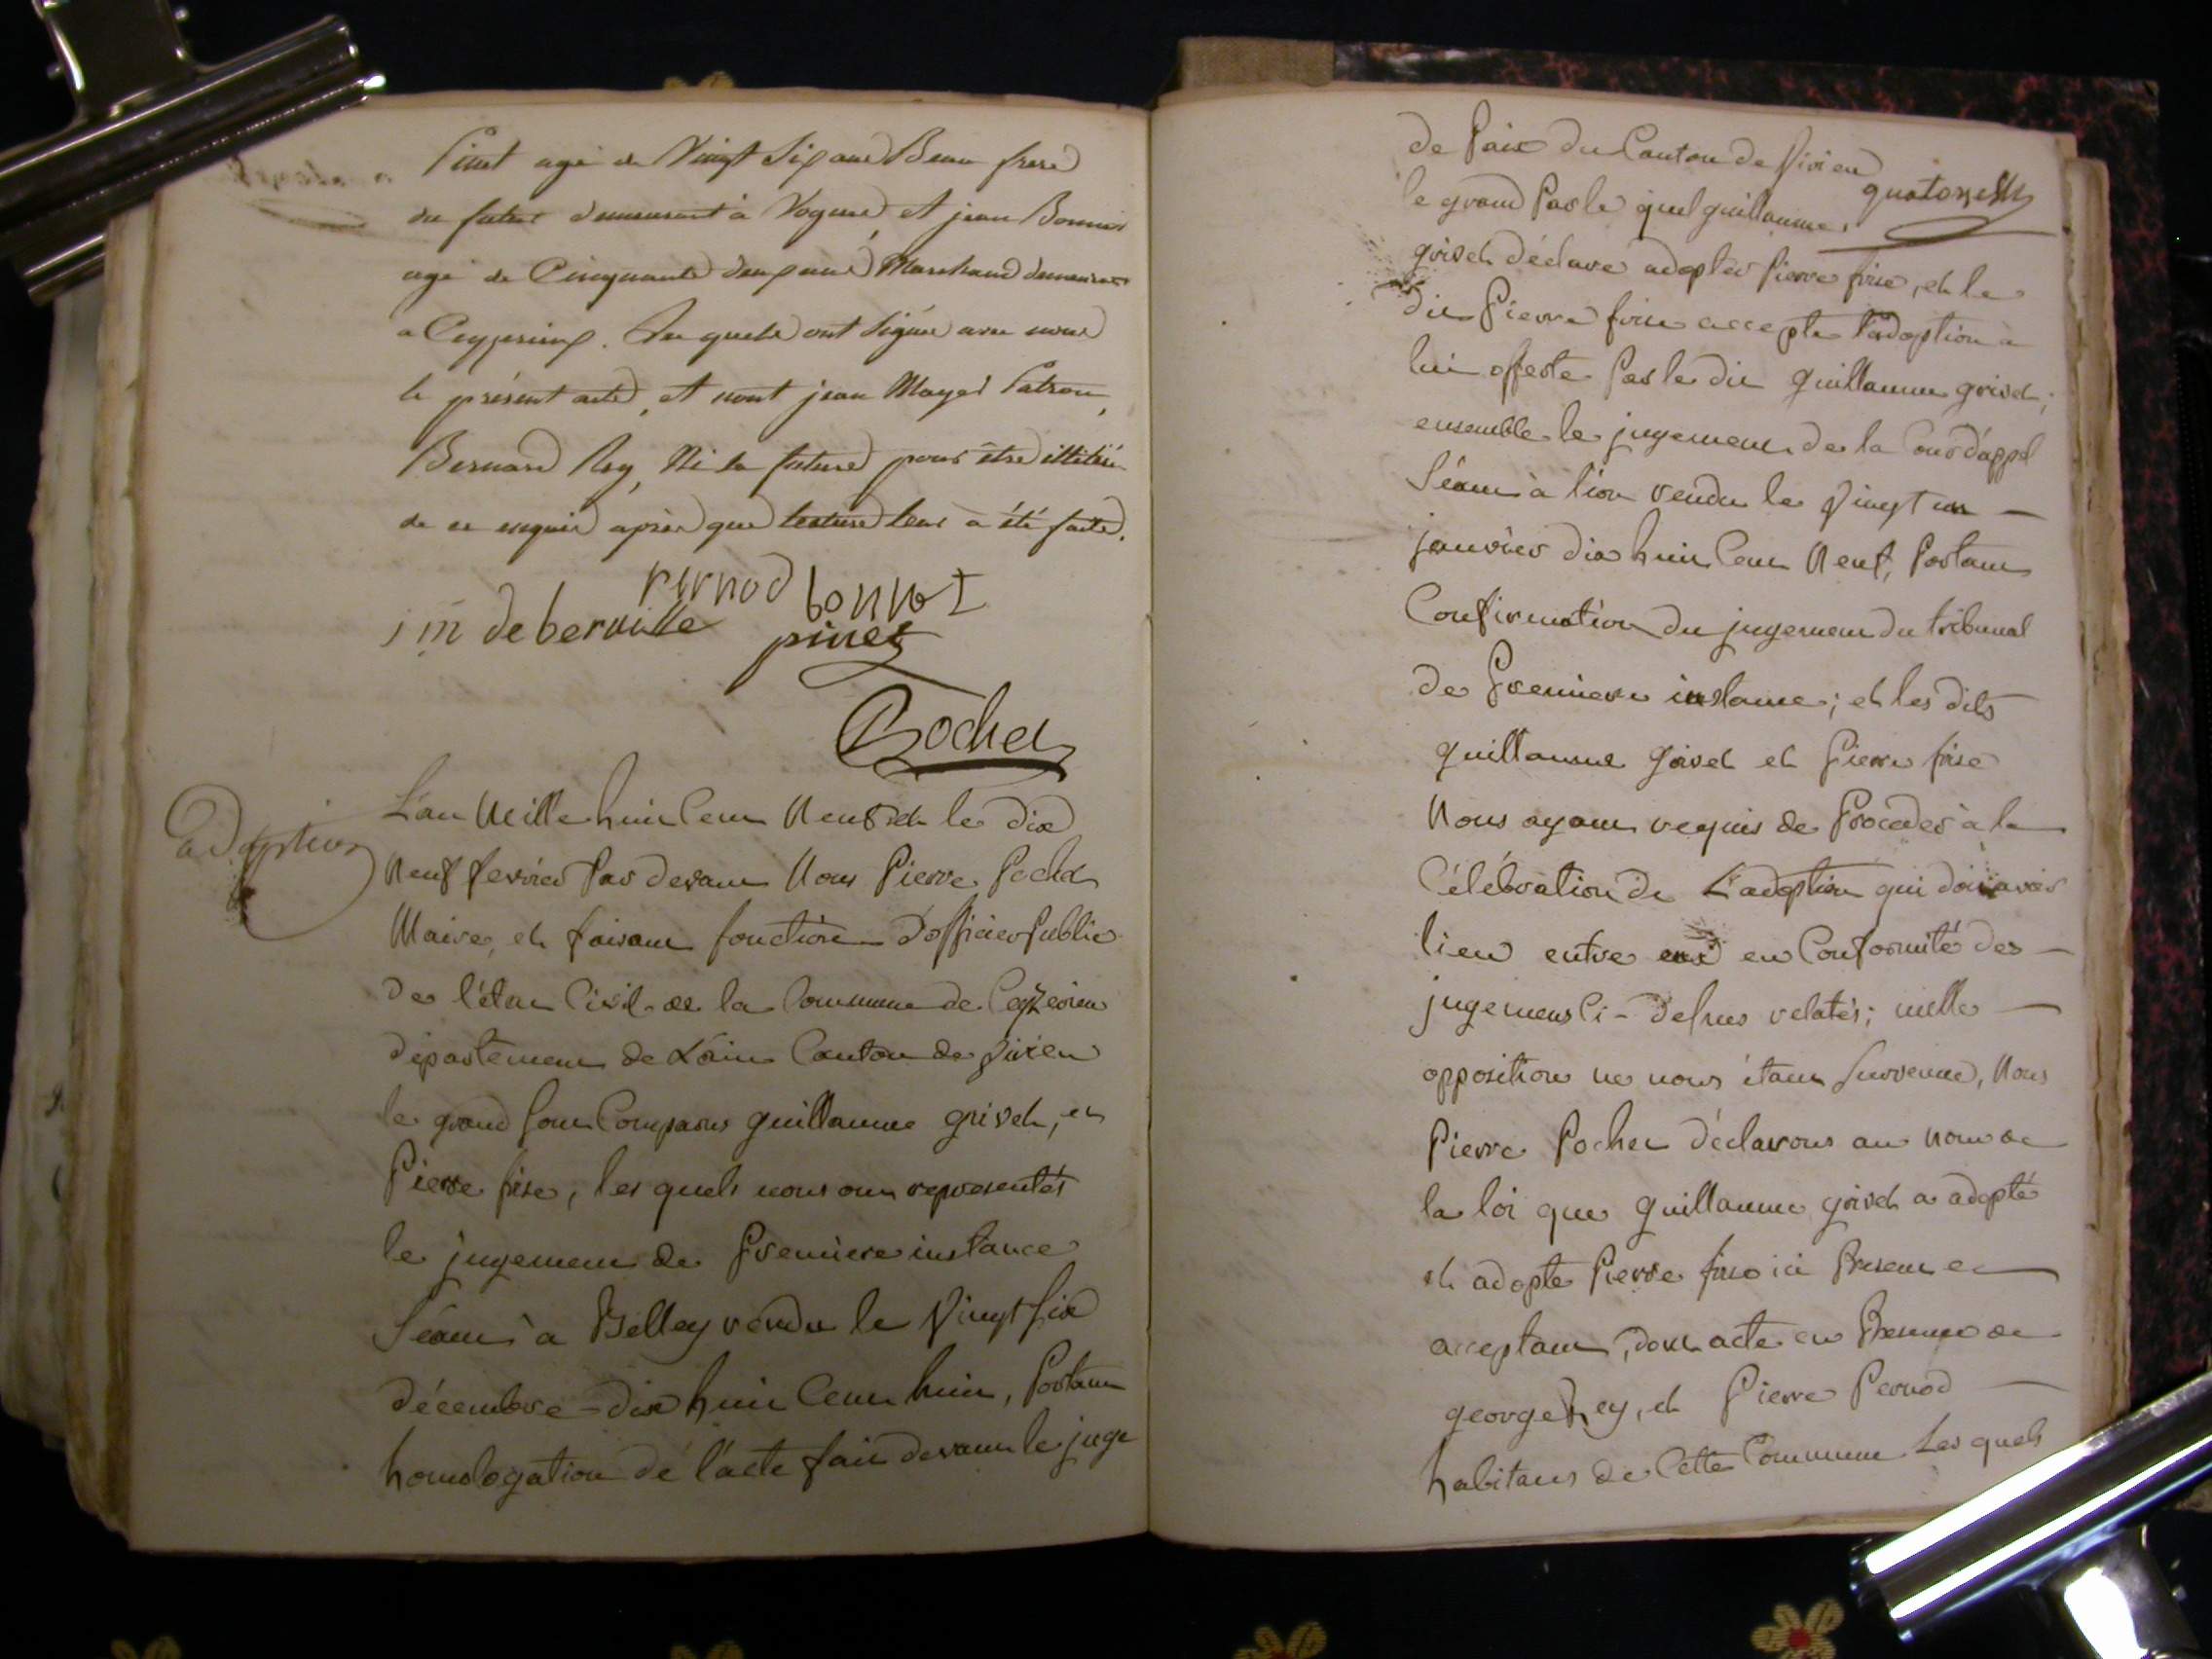 Pinet agé de Vingt Six ans Beau frere
du futur demeurant à Vogne, et jean Bonnet
agé de Cinquante deux ans Marchand demeurant
a Ceyzerieux. Les quels ont Signé avec nous
le présent acte, et nont jean Mayet Patron,
Bernard Rey, Ni la future pour être illitéré
de ce enquis après que lecture leur à été faite.
pernod bonnet
j m de berville pinet
Pochet
adoption
L'an Mille huit Cent Neuf et le dix
Neuf fevrier Par devant Nous Pierre Pochet
Maire, et faisant fonction D'officier Public
de l'état Civil de la Commune de Ceyzerieu
département de L'ain Canton de Virieu
le grand Sont Comparus guillaume grivet, et
Pierre frise, les quels nous ont representés
le jugement de Premiere instance
Séant à Belley rendu le Vingt Six
décembre dix huit Cent huit, Portant
homologation de l'acte fait devant le juge
de Paix du Canton de Virieu
quatorze
le grand Par le quel guillaume
grivet déclare adopter Pierre frise, et le
dit Pierre frise accepte l'adoption à
lui offerte Par le dit guillaume grivet;
ensemble le jugement de la Cour d'appel
Séant à lion rendu le Vingt un
janvier dix huit Cent Neuf, Portant
Confirmation du jugement du tribunal
de Premiere instance; et les dits
guillaume grivet et Pierre frise
Nous ayant requis de Proceder à la
Célébration de L'adoption qui doit avoir
lieu entre eux en Conformité des
jugemens Ci-dessus relatés; nulle
opposition ne nous étant survenue, Nous
Pierre Pochet déclarons au nom de
la loi que guillaume grivet a adopté
et adopte Pierre frise ici Present et
acceptant, dont acte en Presence de
george Rey, et Pierre Pernod
habitans de Cette Commune Les quels